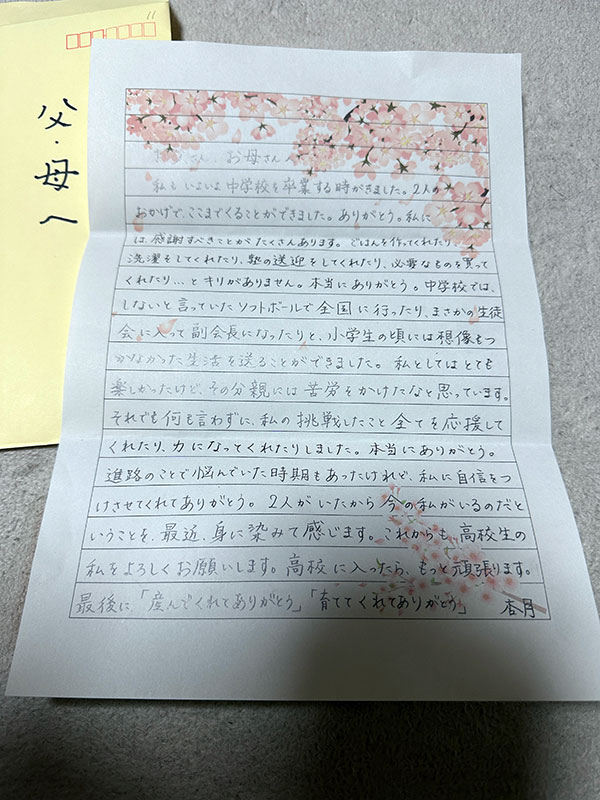 父・母へ
お母さんへ
私もいよいよ中学校を卒業する時がきました。2人の
おかげで、ここまでくることができました。ありがとう。私に
は、感謝すべきことがたくさんあります。ごはんを作ってくれたり、
洗濯をしてくれたり、塾の送迎をしてくれたり、必要なものを買って
くれたり…とキリがありません。本当にありがとう。中学校では、
しないと言っていたソフトボールで全国に行ったり、まさかの生徒
会に入って副会長になったりと、小学生の頃には想像もつ
かなかった生活を送ることができました。私としてはとても
楽しかったけど、その分親には苦労をかけたなと思っています。
それでも何も言わずに、私の挑戦したこと全てを応援して
くれたり、力になってくれたりしました。本当にありがとう。
進路のことで悩んでいた時期もあったけれど、私に自信をつ
けさせてくれてありがとう。2人がいたから今の私がいるのだと
いうことを、最近、身に染みて感じます。これからも、高校生の
私をよろしくお願いします。高校に入ったら、もっと頑張ります。
最後に、「産んでくれてありがとう」「育ててくれてありがとう」 杏月